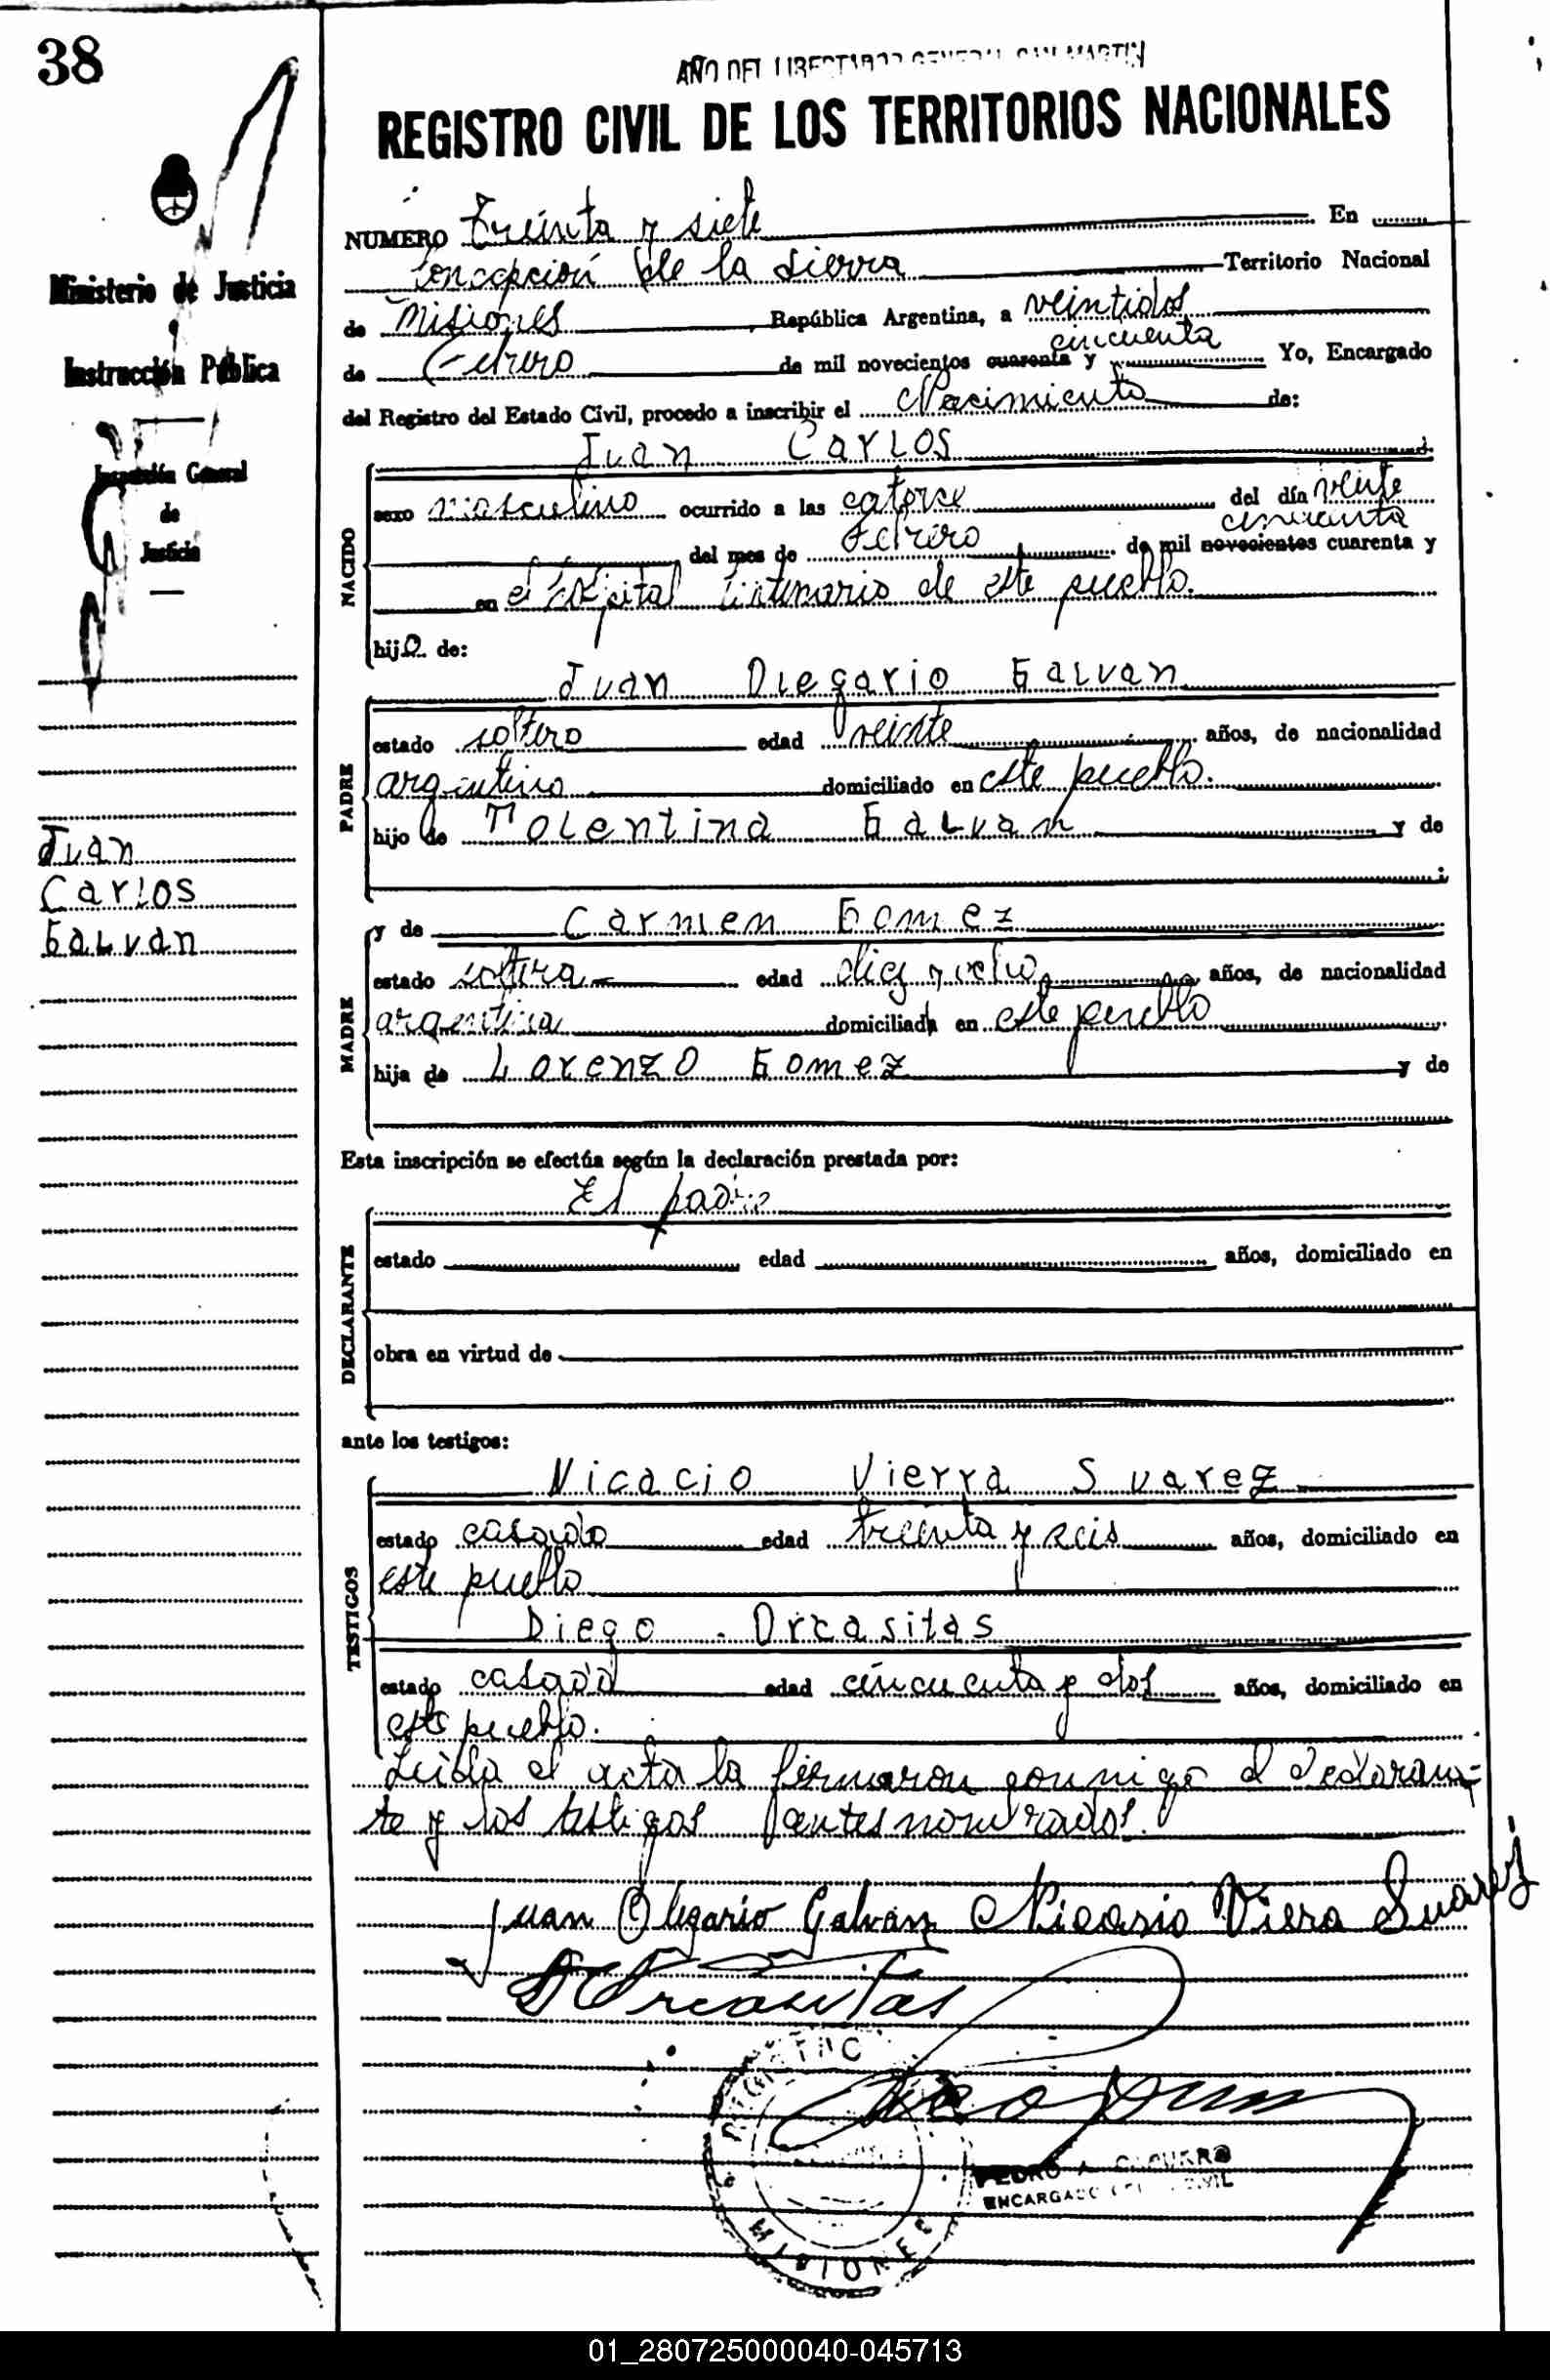 38
AÑO DEL LIBERTADOR GENERAL SAN MARTIN
REGISTRO CIVIL DE LOS TERRITORIOS NACIONALES
Ministerio de Justicia
e
Instrucción Pública
Inspección General
de
Justicia
Juan
Carlos
Galvan
NUMERO Treinta y siete En
Concepción de la Sierra Territorio Nacional
de Misiones, República Argentina, a veintidos
de Febrero de mil novecientos cuarenta y cincuenta Yo, Encargado
del Registro del Estado Civil, procedo a inscribir el Nacimiento de:
NACIDO
Juan Carlos
sexo masculino ocurrido a las catorce del día veinte
del mes de Febrero de mil novecientos cuarenta y cincuenta
en el Hospital Centenario de este pueblo.
hijo de:
PADRE
Juan Olegario Galvan
estado soltero edad veinte años, de nacionalidad
argentino domiciliado en este pueblo.
hijo de Tolentina Galvan y de
;
MADRE
y de Carmen Gomez
estado soltera edad diez y ocho años, de nacionalidad
argentina domiciliada en este pueblo
hija de Lorenzo Gomez y de
Esta inscripción se efectúa según la declaración prestada por:
DECLARANTE
El padre
estado edad años, domiciliado en
obra en virtud de
ante los testigos:
TESTIGOS
Nicacio Vierra Suarez
estado casado edad treinta y seis años, domiciliado en
este pueblo
Diego Orcasitas
estado casado edad cincuenta y dos años, domiciliado en
este pueblo.
Leida el acta la firmaron conmigo el declaran-
te y los testigos antes nombrados.
Juan Olegario Galván Nicasio Viera Suarez
D Orcasitas
PEDRO A.
ENCARGADO CIVIL
MISIONES
01_280725000040-045713